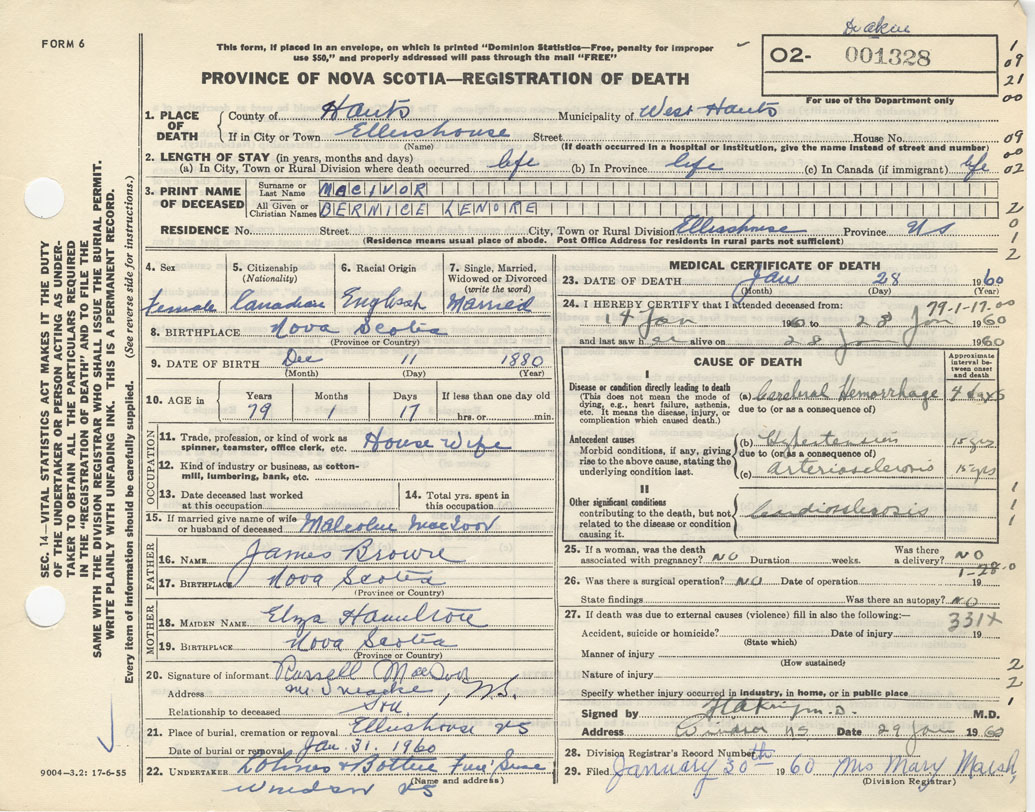 FORM 6
This form, if placed in an envelope, on which is printed "Dominion Statistics—Free, penalty for improper
use $50," and properly addressed will pass through the mail "FREE"
PROVINCE OF NOVA SCOTIA—REGISTRATION OF DEATH
02- 001328
For use of the Department only
1
09
21
00
09
00
02
2
0
1
2
SEC. 14—VITAL STATISTICS ACT MAKES IT THE DUTY
OF THE UNDERTAKER OR PERSON ACTING AS UNDER-
TAKER TO OBTAIN ALL THE PARTICULARS REQUIRED
IN THE "REGISTRATION OF DEATH" AND TO FILE THE
SAME WITH THE DIVISION REGISTRAR WHO SHALL ISSUE THE BURIAL PERMIT.
WRITE PLAINLY WITH UNFADING INK. THIS IS A PERMANENT RECORD.
Every item of information should be carefully supplied. (See reverse side for instructions.)
1. PLACE OF DEATH
County of Hants Municipality of West Hants
If in City or Town Ellershouse Street House No.
(Name) (If death occurred in a hospital or institution, give the name instead of street and number)
2. LENGTH OF STAY (in years, months and days)
(a) In City, Town or Rural Division where death occurred life (b) In Province life (c) In Canada (if immigrant) life
3. PRINT NAME OF DECEASED
Surname or Last Name MACIVOR
All Given or Christian Names BERNICE LENORE
RESIDENCE No. Street City, Town or Rural Division Ellershouse Province NS
(Residence means usual place of abode. Post Office Address for residents in rural parts not sufficient)
4. Sex 5. Citizenship (Nationality) 6. Racial Origin 7. Single, Married, Widowed or Divorced (write the word)
Female Canadian English Married
8. BIRTHPLACE Nova Scotia
(Province or Country)
9. DATE OF BIRTH Dec 11 1880
(Month) (Day) (Year)
10. AGE in Years Months Days If less than one day old
79 1 17 hrs. or min.
OCCUPATION
11. Trade, profession, or kind of work as
spinner, teamster, office clerk, etc. House Wife
12. Kind of industry or business, as cotton-
mill, lumbering, bank, etc.
13. Date deceased last worked
at this occupation
14. Total yrs. spent in
this occupation
15. If married give name of wife
or husband of deceased Malcolm MacIvor
FATHER
16. NAME James Browne
17. BIRTHPLACE Nova Scotia
(Province or Country)
MOTHER
18. MAIDEN NAME Hamilton
19. BIRTHPLACE Nova Scotia
(Province or Country)
20. Signature of informant Russell MacIvor
Address Mt Uniacke, N.S.
Relationship to deceased Son
21. Place of burial, cremation or removal Ellershouse NS
Date of burial or removal Jan. 31, 1960
22. UNDERTAKER
(Name and address)
Windsor NS
9004—3.2: 17-6-55
MEDICAL CERTIFICATE OF DEATH
23. DATE OF DEATH Jan 28 1960
(Month) (Day) (Year)
79-1-17-00
24. I HEREBY CERTIFY that I attended deceased from:
14 Jan 1960 to 28 Jan 1960
and last saw her alive on 28 Jan 1960
CAUSE OF DEATH
Approximate interval between onset and death
I
Disease or condition directly leading to death
(This does not mean the mode of
dying, e.g., heart failure, asthenia,
etc. It means the disease, injury, or
complication which caused death.)
(a) Cerebral Hemorrhage 4 days
due to (or as a consequence of)
Antecedent causes
Morbid conditions, if any, giving
rise to the above cause, stating the
underlying condition last.
(b) Hypertension 15 yrs
due to (or as a consequence of)
(c) arteriosclerosis 15 yrs
II
Other significant conditions
contributing to the death, but not
related to the disease or condition
causing it.
Cardiosclerosis
1
1
1
25. If a woman, was the death
associated with pregnancy? NO Duration weeks. Was there
a delivery? NO
1-28-0
26. Was there a surgical operation? NO Date of operation 19
State findings Was there an autopsy? NO
27. If death was due to external causes (violence) fill in also the following:—
331X
Accident, suicide or homicide? Date of injury 19
(State which)
Manner of injury
(How sustained)
Nature of injury
Specify whether injury occurred in industry, in home, or in public place
2
2
1
Signed by M.D.
Address Windsor NS Date 29 Jan 1960
28. Division Registrar's Record Number
29. Filed January 30th 1960 Mrs Mary Marsh
(Division Registrar)